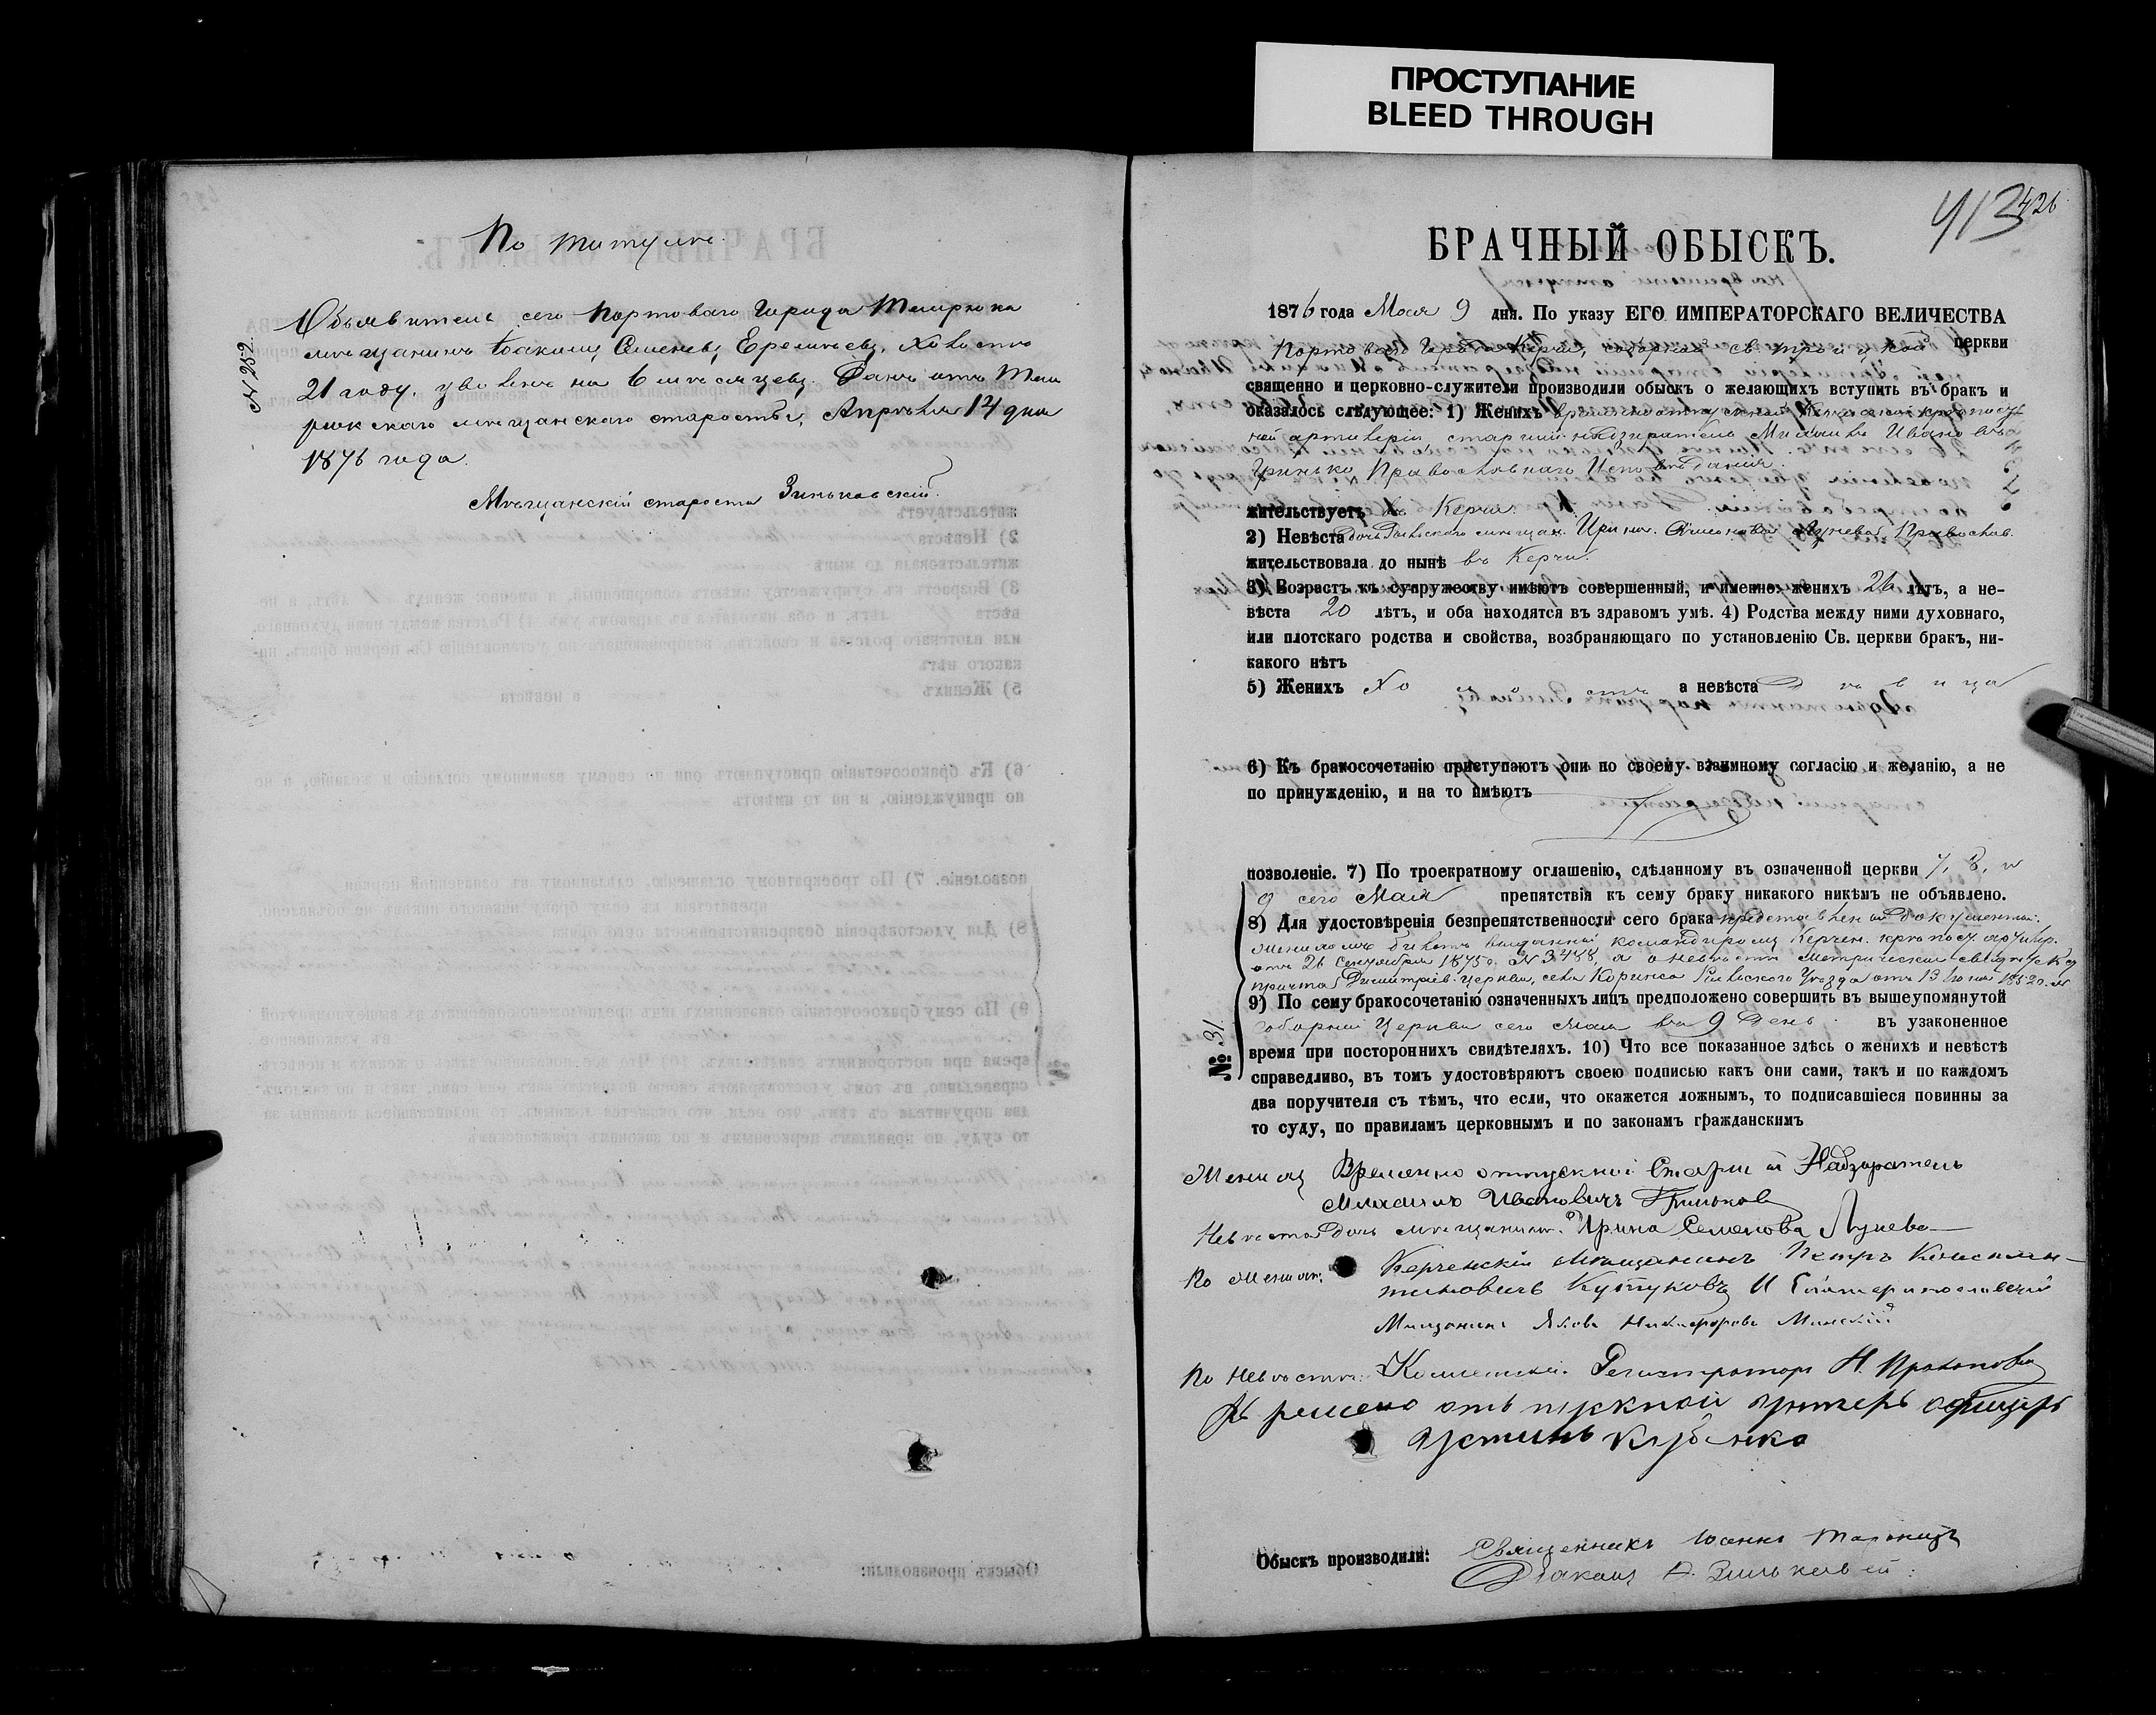 ПРОСТУПАНИЕ
BLEED THROUGH
По титулѣ
№ 252
Объявитель сего портоваго города Темрюка
мѣщанинъ Іоакимъ Семеновъ Еремѣевъ, холостъ
21 году, уволенъ на 6 мѣсяцевъ. Данъ отъ Тем
рюкскаго мѣщанскаго старосты, Апрѣля 14 дня
1876 года.
Мѣщанскій староста Зиньковскій.
413 426
БРАЧНЫЙ ОБЫСКЪ.
1876 года Мая 9 дня. По указу ЕГО ИМПЕРАТОРСКАГО ВЕЛИЧЕСТВА
Портоваго города Керчи, соборной св. троицкой церкви
священно и церковно-служители производили обыскъ о желающихъ вступить въ бракъ и
оказалось слѣдующее: 1) Женихъ временно отпускной Керченской крѣпост-
ной артилеріи, старший надзиратель Михаилъ Ивановъ
Гринько, Православнаго Исповѣданія.
жительствуетъ въ Керчи.
2) Невѣста дочь Рыльскаго мѣщан. Ирина Симонова Лунева, Православ.
жительствовала до нынѣ въ Керчи.
3) Возрастъ къ супружеству имѣютъ совершенный, и именно: женихъ 26 лѣтъ, а не-
вѣста 20 лѣтъ, и оба находятся въ здравомъ умѣ. 4) Родства между ними духовнаго,
или плотскаго родства и свойства, возбраняющаго по установленію Св. церкви бракъ, ни-
какого нѣтъ
5) Женихъ Холостъ а невѣста Дѣвица
6) Къ бракосочетанію приступаютъ они по своему взаимному согласію и желанію, а не
по принужденію, и на то имѣютъ
позволеніе. 7) По троекратному оглашенію, сдѣланному въ означенной церкви 7, 8, и
9 сего Мая препятствія къ сему браку никакого никѣмъ не объявлено.
8) Для удостовѣренія безпрепятственности сего брака представлены документы:
женихомъ билетъ выданный командиромъ Керчен. крѣпост. артилер.
отъ 26 сентября 1875 г. № 3488, а о невѣстѣ метрическая
причта Димитріев. церкви, села Коринса Рыльскаго Уѣзда отъ 13 Іюня
9) По сему бракосочетанію означенныхъ лицъ предположено совершить въ вышеупомянутой
соборной Церкви сего Мая въ 9 день въ узаконенное
№ 31.
время при постороннихъ свидѣтеляхъ. 10) Что все показанное здѣсь о женихѣ и невѣстѣ
справедливо, въ томъ удостовѣряютъ своею подписью какъ они сами, такъ и по каждомъ
два поручителя съ тѣмъ, что если, что окажется ложнымъ, то подписавшіеся повинны за
то суду, по правиламъ церковнымъ и по законамъ гражданскимъ
Женихъ Временно отпускной Старшій Надзиратель
Михаилъ Ивановичъ Гриньковъ
Невѣста дочь мѣщанина Ирина Семенова Лунева
По женихѣ: Керченскій Мѣщанинъ Петръ Констан-
тиновичъ Кутуковъ И Екатеринославскій
Мещанинъ Яковъ Никифоровъ Минскій
По Невѣстѣ: Колежскій Регистраторъ Н. Прокоповъ
отъ пускной унтеръ офицеръ
Устинъ
Обыскъ производили: Священникъ Іоаннъ
Діаконъ